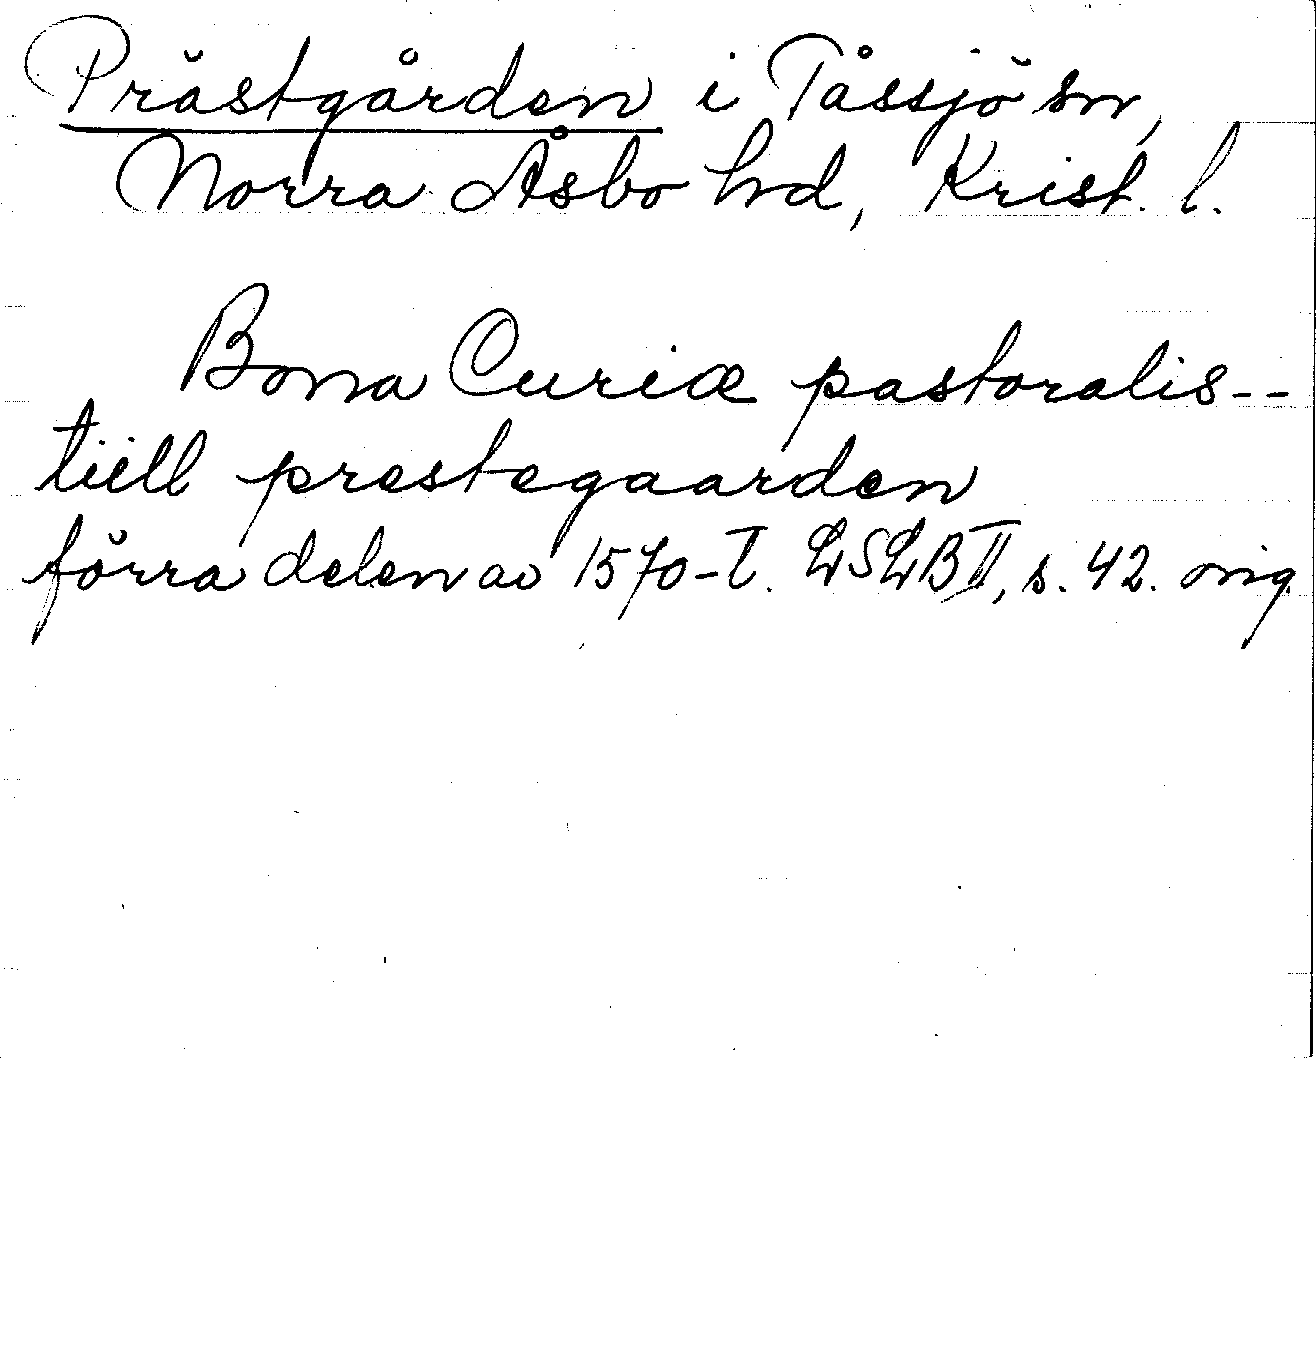 Prästgården i Tåssjö sn,
Norra Åsbo hd, Krist. l.
Bona Curiæ pastoralis--
tiill prestegaarden
förra delen av 1570-t. LSLB II, s. 42. orig.